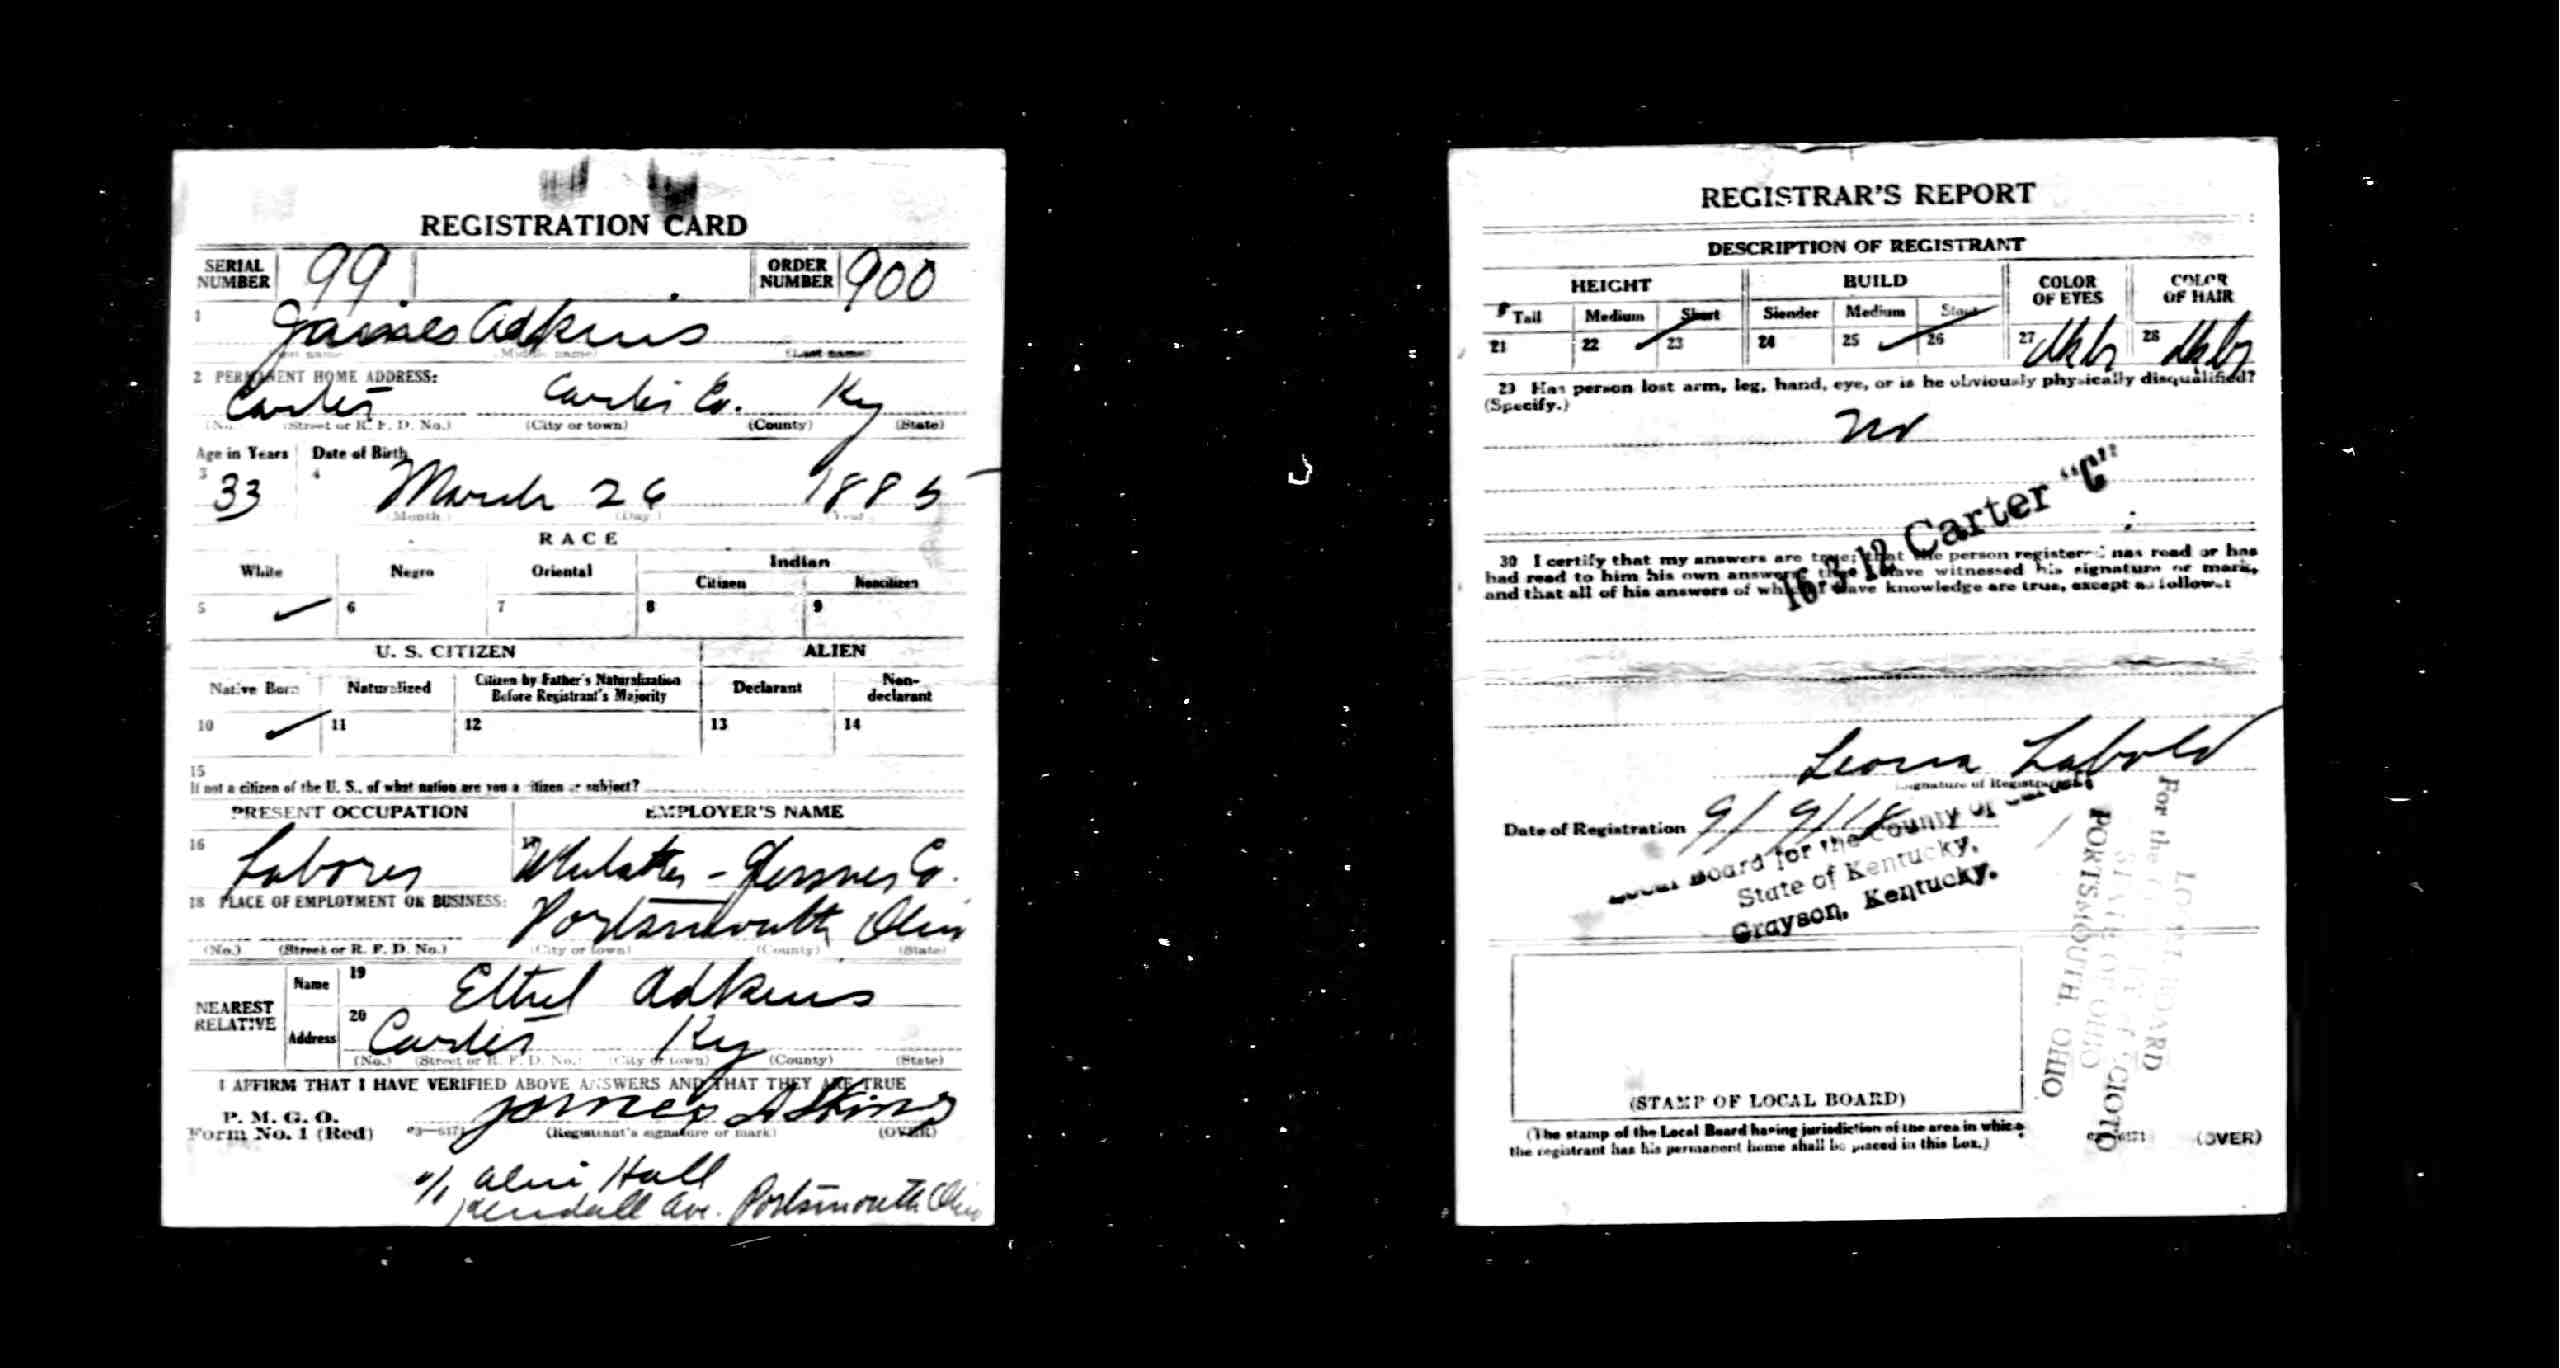 REGISTRATION CARD
SERIAL NUMBER 99 ORDER NUMBER 900
1 James Adkins
(First name) (Middle name) (Last name)
2 PERMANENT HOME ADDRESS:
Carter Carter Co. Ky
(No.) (Street or R. F. D. No.) (City or town) (County) (State)
Age in Years Date of Birth
3 33 4 March 26 1885
(Month) (Day) (Year)
RACE
White Negro Oriental Indian
Citizen Noncitizen
5 ✓ 6 7 8 9
U. S. CITIZEN ALIEN
Native Born Naturalized Citizen by Father's Naturalization Before Registrant's Majority Declarant Non-declarant
10 ✓ 11 12 13 14
15
If not a citizen of the U. S., of what nation are you a citizen or subject?
PRESENT OCCUPATION EMPLOYER'S NAME
16 Laborer 17 Whitaker-Glessner Co.
18 PLACE OF EMPLOYMENT OR BUSINESS:
Portsmouth Ohio
(No.) (Street or R. F. D. No.) (City or town) (County) (State)
NEAREST RELATIVE
Name 19 Ethel Adkins
Address 20 Carter Ky
(No.) (Street or R. F. D. No.) (City or town) (County) (State)
I AFFIRM THAT I HAVE VERIFIED ABOVE ANSWERS AND THAT THEY ARE TRUE
P. M. G. O.
Form No. 1 (Red) James Adkins
(Registrant's signature or mark) (OVER)
Hall
Kendall Ave. Portsmouth Ohio
REGISTRAR'S REPORT
DESCRIPTION OF REGISTRANT
HEIGHT BUILD COLOR OF EYES COLOR OF HAIR
Tall Medium Short Slender Medium Stout
21 22 ✓ 23 24 25 ✓ 26 27 28
29 Has person lost arm, leg, hand, eye, or is he obviously physically disqualified?
(Specify.)
no
16-3-12 Carter "C"
30 I certify that my answers are true; that the person registered has read or has
had read to him his own answers; that I have witnessed his signature or mark,
and that all of his answers of which I have knowledge are true, except as follows:
Leona Labold
(Signature of Registrar)
Date of Registration 9/9/18
Local Board for the County of Carter
State of Kentucky,
Grayson, Kentucky.
LOCAL BOARD
For the CITY of SCIOTO
STATE OF OHIO
PORTSMOUTH, OHIO
(STAMP OF LOCAL BOARD)
(The stamp of the Local Board having jurisdiction of the area in which
the registrant has his permanent home shall be placed in this box.)
(OVER)